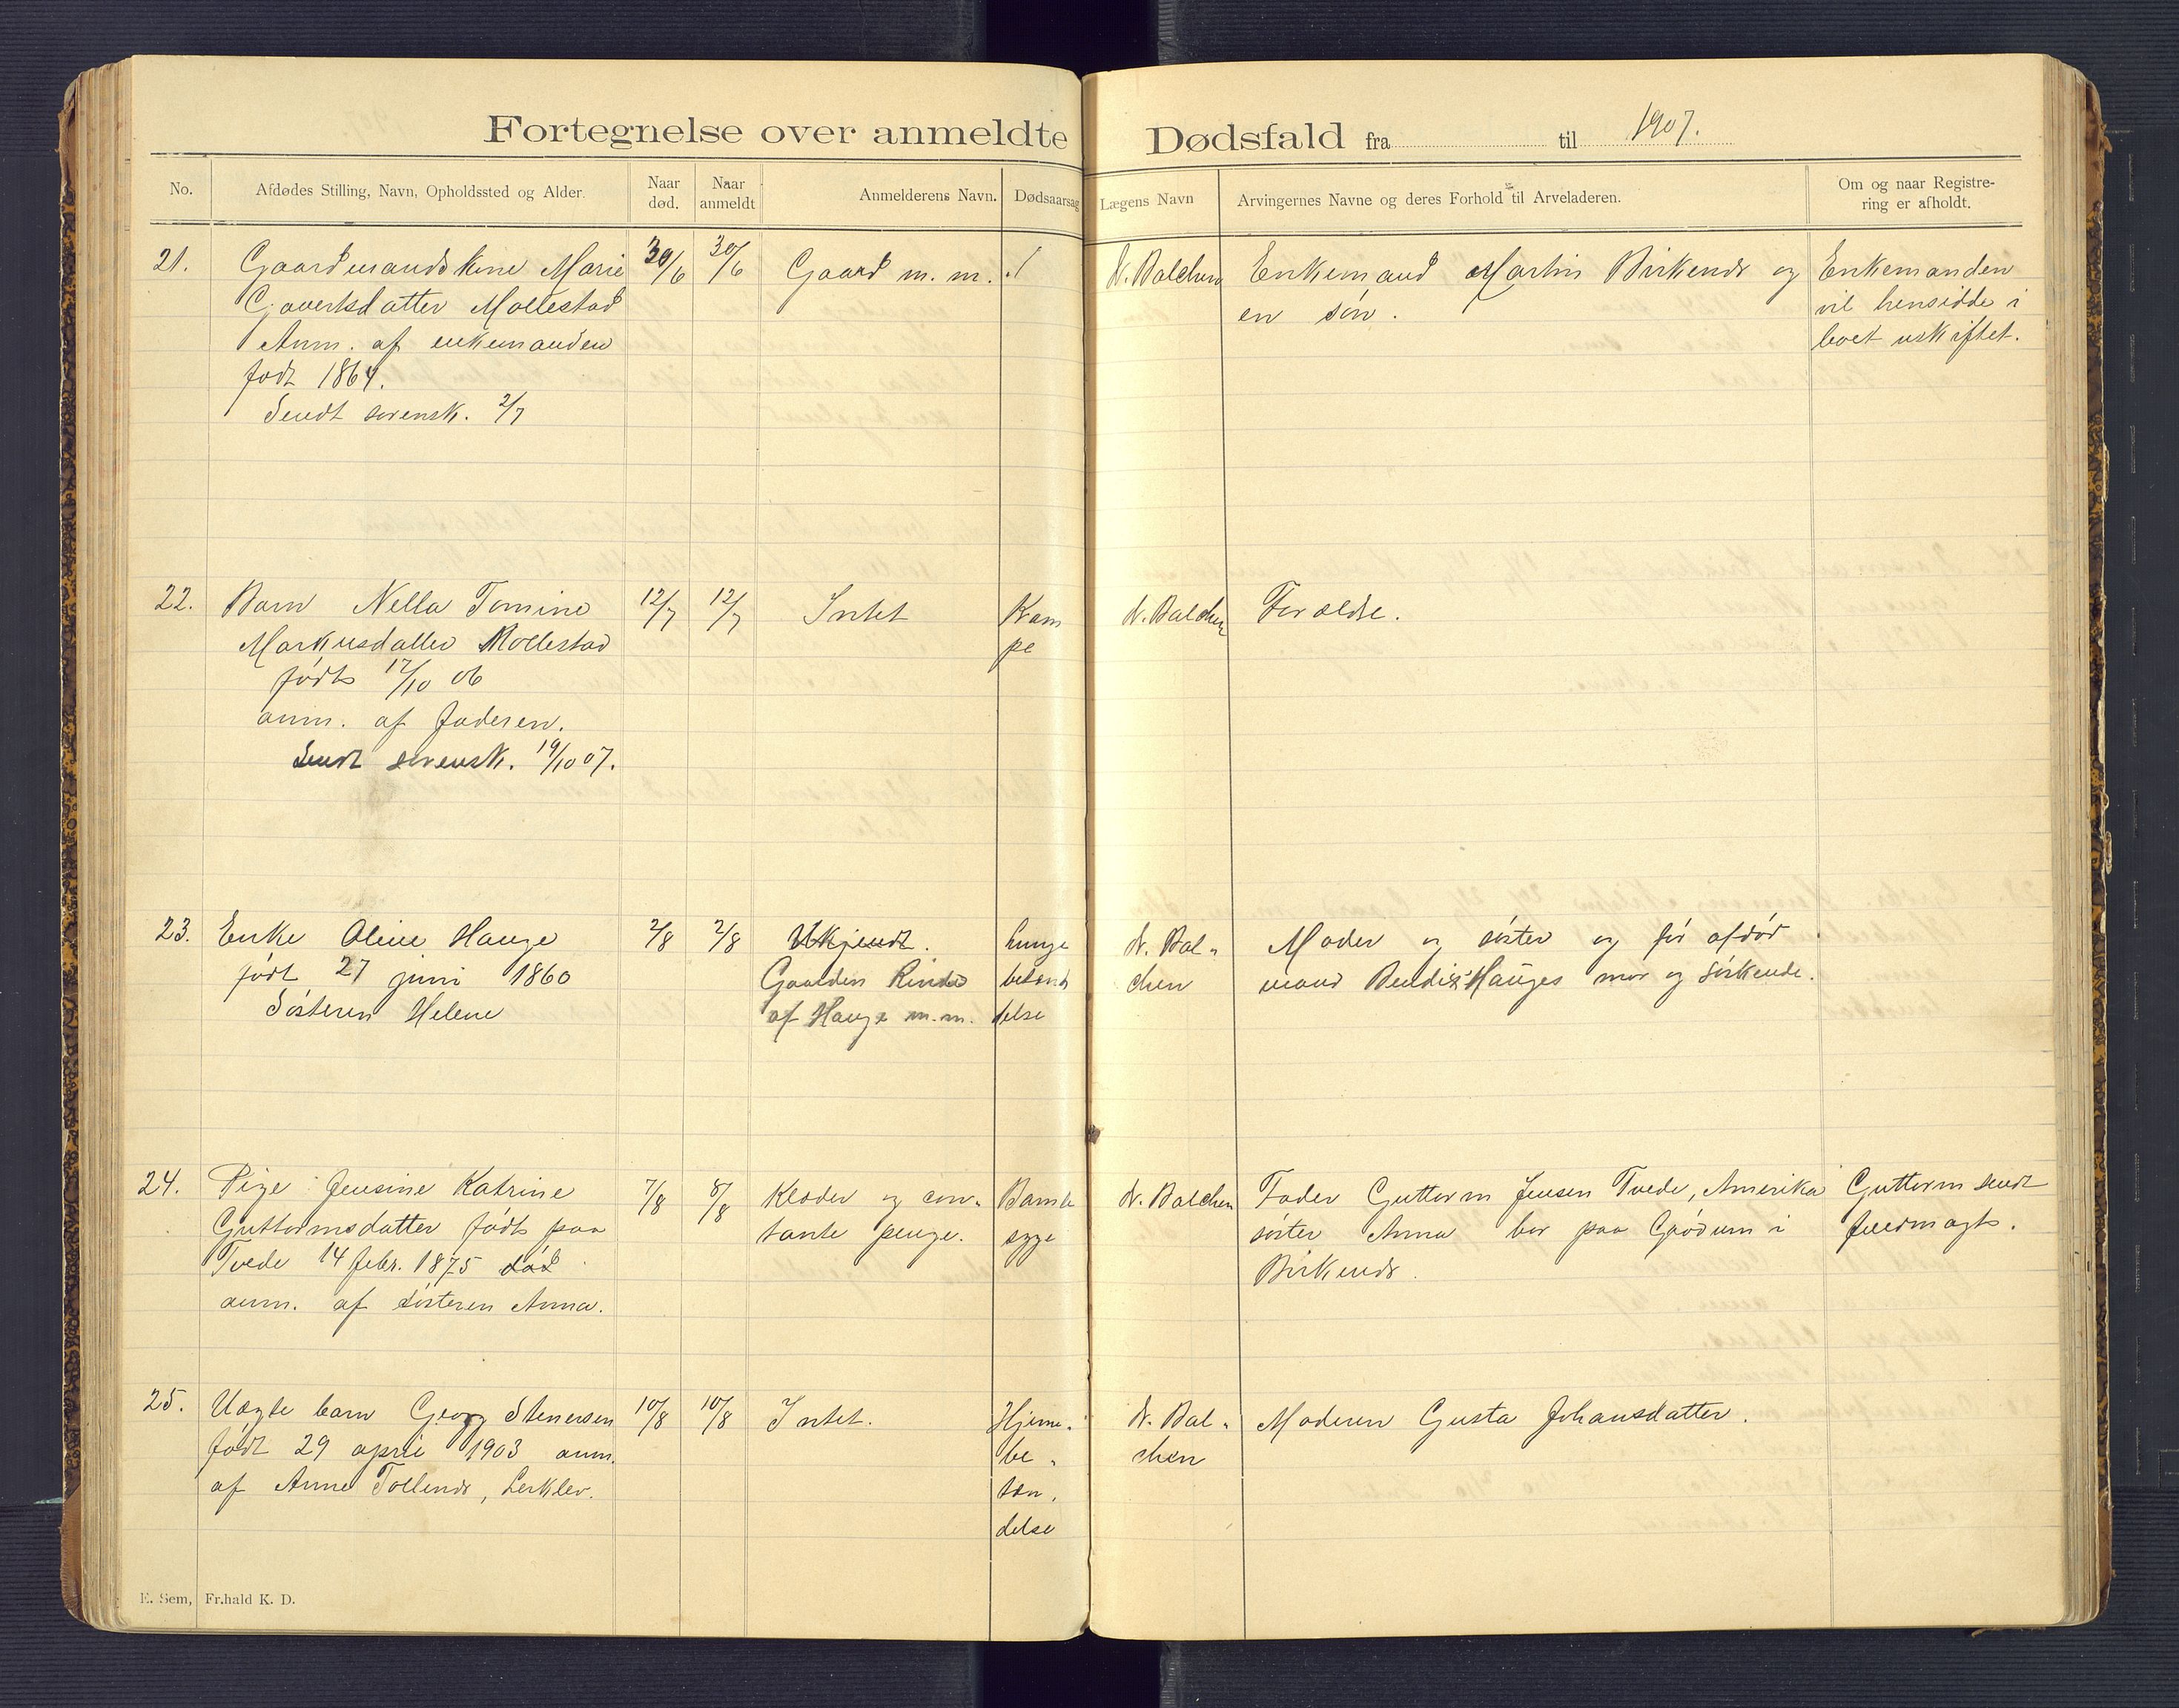 Fortegnelse over anmeldte Dødsfald fra til 1907.
No. Afdødes Stilling, Navn, Opholdssted og Alder. Naar død. Naar anmeldt Anmelderens Navn. Dødsaarsag Lægens Navn Arvingernes Navne og deres Forhold til Arveladeren. Om og naar Registrering er afholdt.
21. Gaardmandskone Marie 30/6 30/6 Gaard m. m. ./ dr. Balchen Enkemand Martin Birkends og Enkemanden
Govertsdatter Mollestad en søn. vil hensidde i
Anm. af enkemanden boet uskiftet.
født 1864.
Sendt sorensk. 2/7
22. Barn Nella Tomine 12/7 12/7 Intet Kram dr. Balchen Forældre.
Markusdatter Mollestad pe
født 17/10 06
anm. af faderen.
Sendt sorensk. 19/10 07.
23. Enke Oline Hauge 2/8 2/8 Ukjendt. lunge dr. Bal- Moder og søster og før afdød
født 27 juni 1860 Gaarden betænd chen mand Bendix Hauges mor og søskende.
Søsteren Helene af Hauge m.m. delse
24. Pige Jensine Katrine 7/8 8/8 Klæder og con- dr. Balchen Fader Guttorm Jensen Tvede, Amerika Guttorm sendt
Guttormsdatter født paa tante penge. syge søster Anna bor paa Grødum i fuldmagt.
Tvede 14 febr. 1875 død Birkends.
anm. af søsteren Anna.
25. Uægte barn Georg Stenersen 10/8 10/8 Intet. Hjerne- dr. Bal- Moderen Gusta Johansdatter.
født 29 april 1903 anm. be- chen
af Anne Tollends, Lerklev. tæn-
delse
E. Sem, Fr.hald K. D.